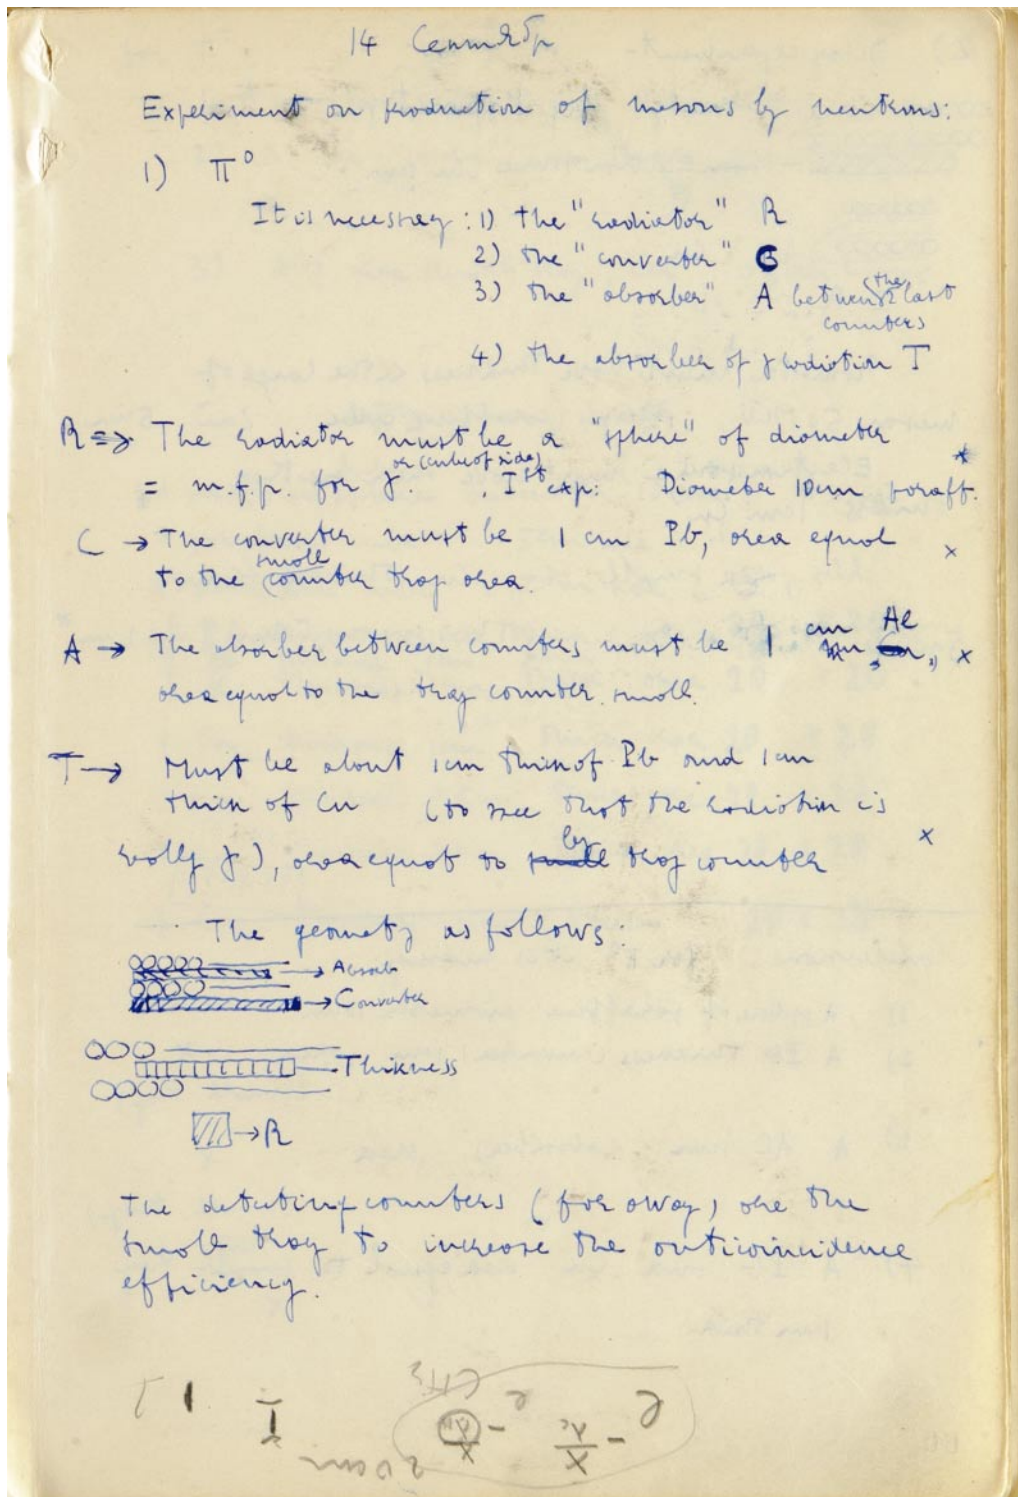 14 Сентябр
Experiment on production of mesons by neutrons:
1) π°
It is necessary: 1) the "radiator" R
2) the "converter" C
3) the "absorber" A between the 2 last
counters
4) the absorber of γ radiation T
R => The radiator must be a "sphere" of diameter
or (cube of side)
= m.f.p. for γ. Ist exp: Diameter 10cm paraff. x
C → The converter must be 1 cm Pb, area equal x
small
to the counter tray area.
A → The absorber between counters must be 1 cm Al x
area equal to the tray counter small.
T → Must be about 1cm thick of Pb and 1 cm
thick of Cu (to see that the radiation is
really γ), area equal to tray counter x
The geometry as follows:
→ Absorb
→ Converter
Thikness
→ R
The detecting counters (far away) are the
small tray to increase the anticoincidence
efficiency.